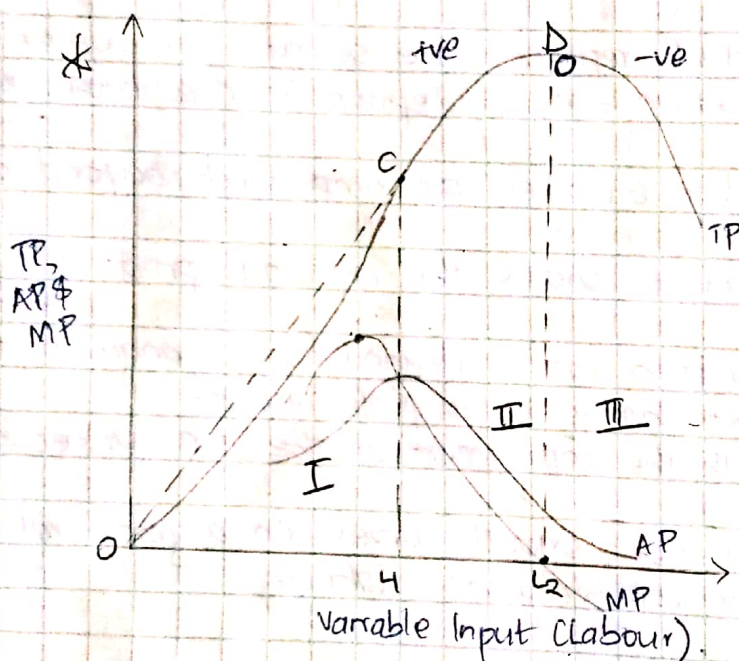 *
+ve
D
-ve
O
C
TP
TP,
AP &
MP
I
II
III
O
AP
L1
L2
MP
Variable Input (Labour).